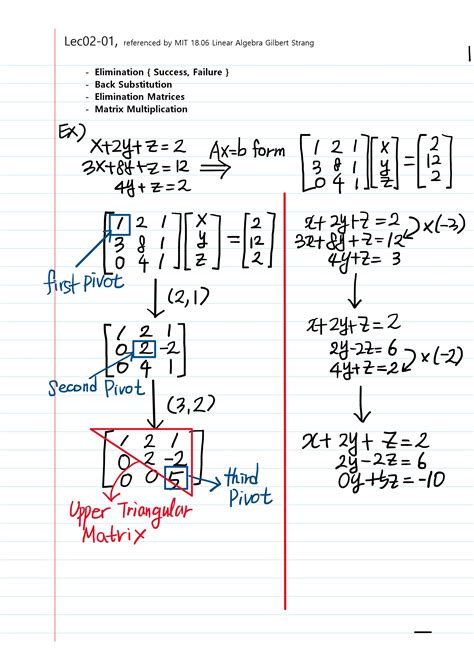 Lec02-01, referenced by MIT 18.06 Linear Algebra Gilbert Strang
1
- Elimination { Success, Failure }
- Back Substitution
- Elimination Matrices
- Matrix Multiplication
Ex)
x+2y+z=2
3x+8y+z=12
4y+z=2
⇒ Ax=b form
[1 2 1] [x] = [2]
[3 8 1] [y] = [12]
[0 4 1] [z] = [2]
[1 2 1] [x] = [2]
[3 8 1] [y] = [12]
[0 4 1] [z] = [2]
first Pivot
↓ (2,1)
[1 2 1]
[0 2 -2]
[0 4 1]
Second Pivot
↓ (3,2)
[1 2 1]
[0 2 -2]
[0 0 5]
third
Pivot
Upper Triangular
Matrix
x+2y+z=2
3x+8y+z=12
×(-3)
4y+z=3
↓
x+2y+z=2
2y-2z=6
4y+z=2
×(-2)
↓
x+2y+z=2
2y-2z=6
0y+5z=-10